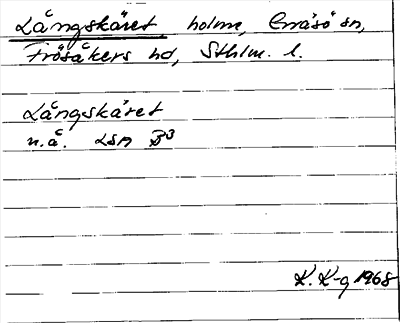 Långskäret holme, Gräsö sn,
Frösåkers hd, Sthlm. l.
Långskäret
n.å. LSA B³
K. K-g 1968